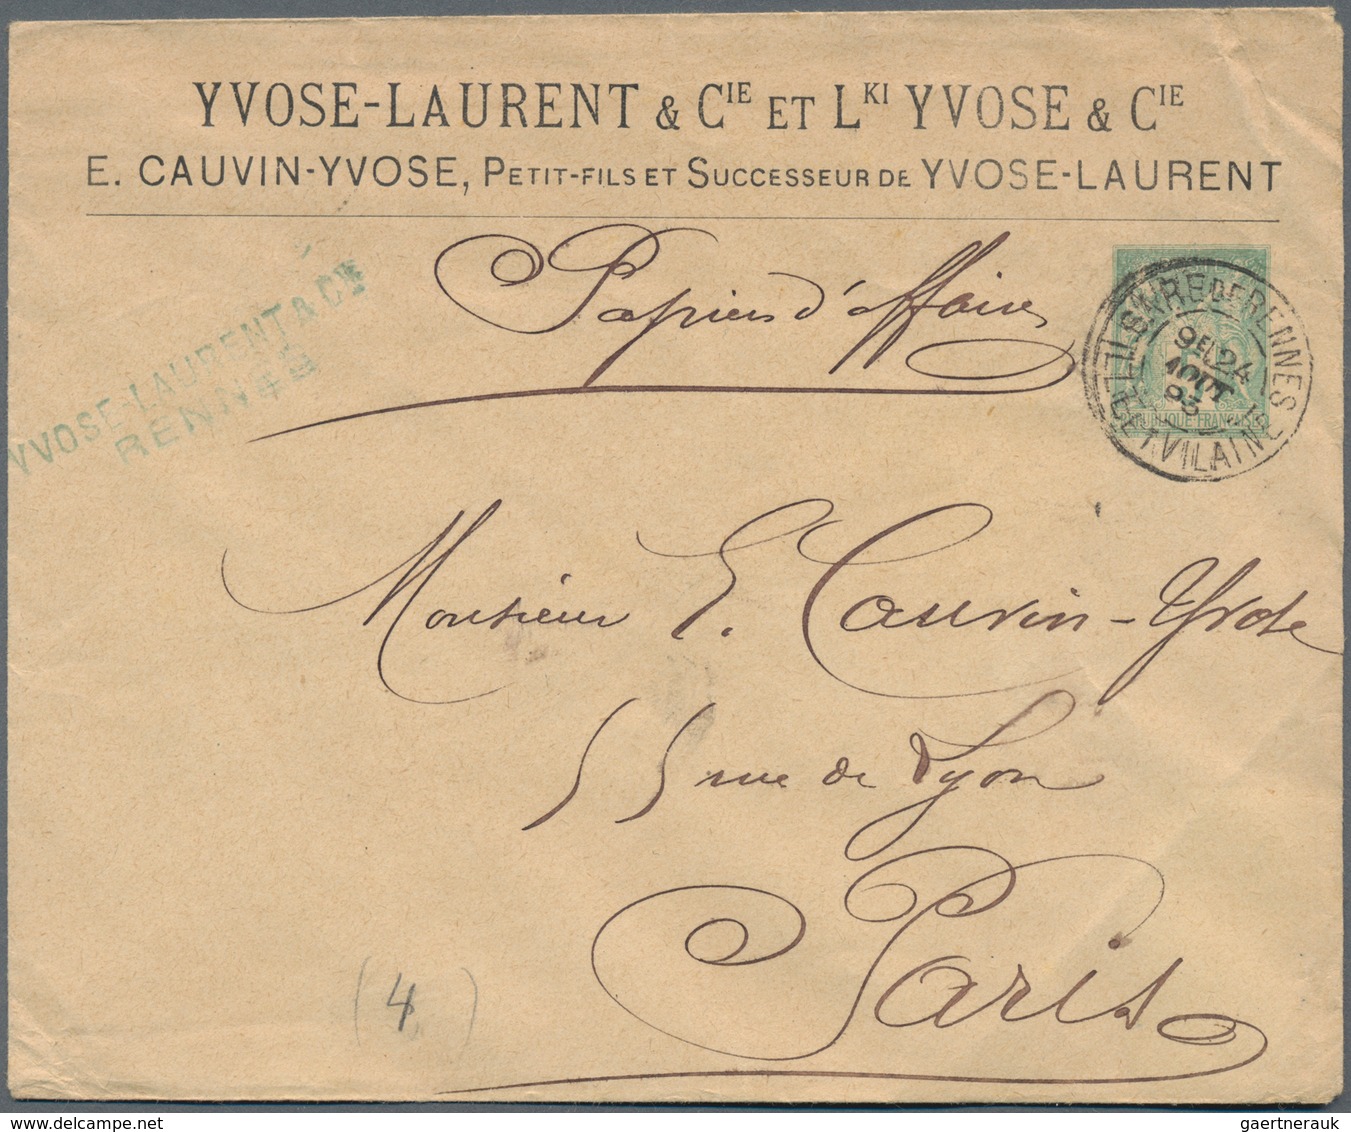 YVOSE-LAURENT & CIE ET LKI YVOSE & CIE
E. CAUVIN-YVOSE, PETIT-FILS ET SUCCESSEUR DE YVOSE-LAURENT
Papiers d'affaires
YVOSE-LAURENT & Cie
RENNES
GARE DE RENNES
9E 24
AOUT
93
ILLE-ET-VILAINE
5
REPUBLIQUE FRANÇAISE
Monsieur E. Cauvin-Yvose
55 rue de Lyon
Paris
(4)
gaertnerauk